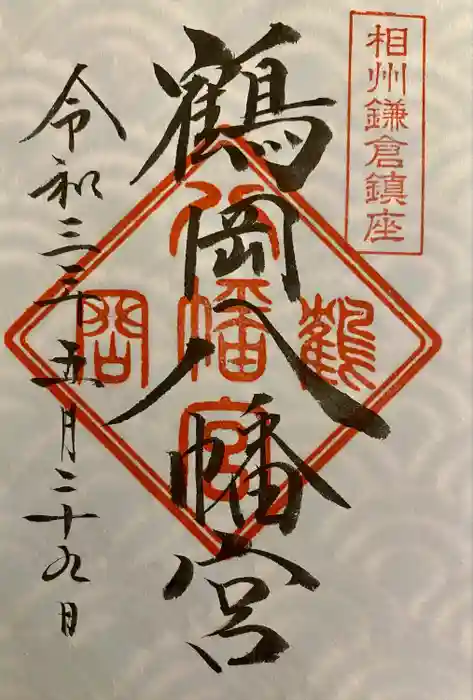 相州鎌倉鎮座
鶴岡八幡宮
鶴岡八幡宮
令和三年五月二十九日